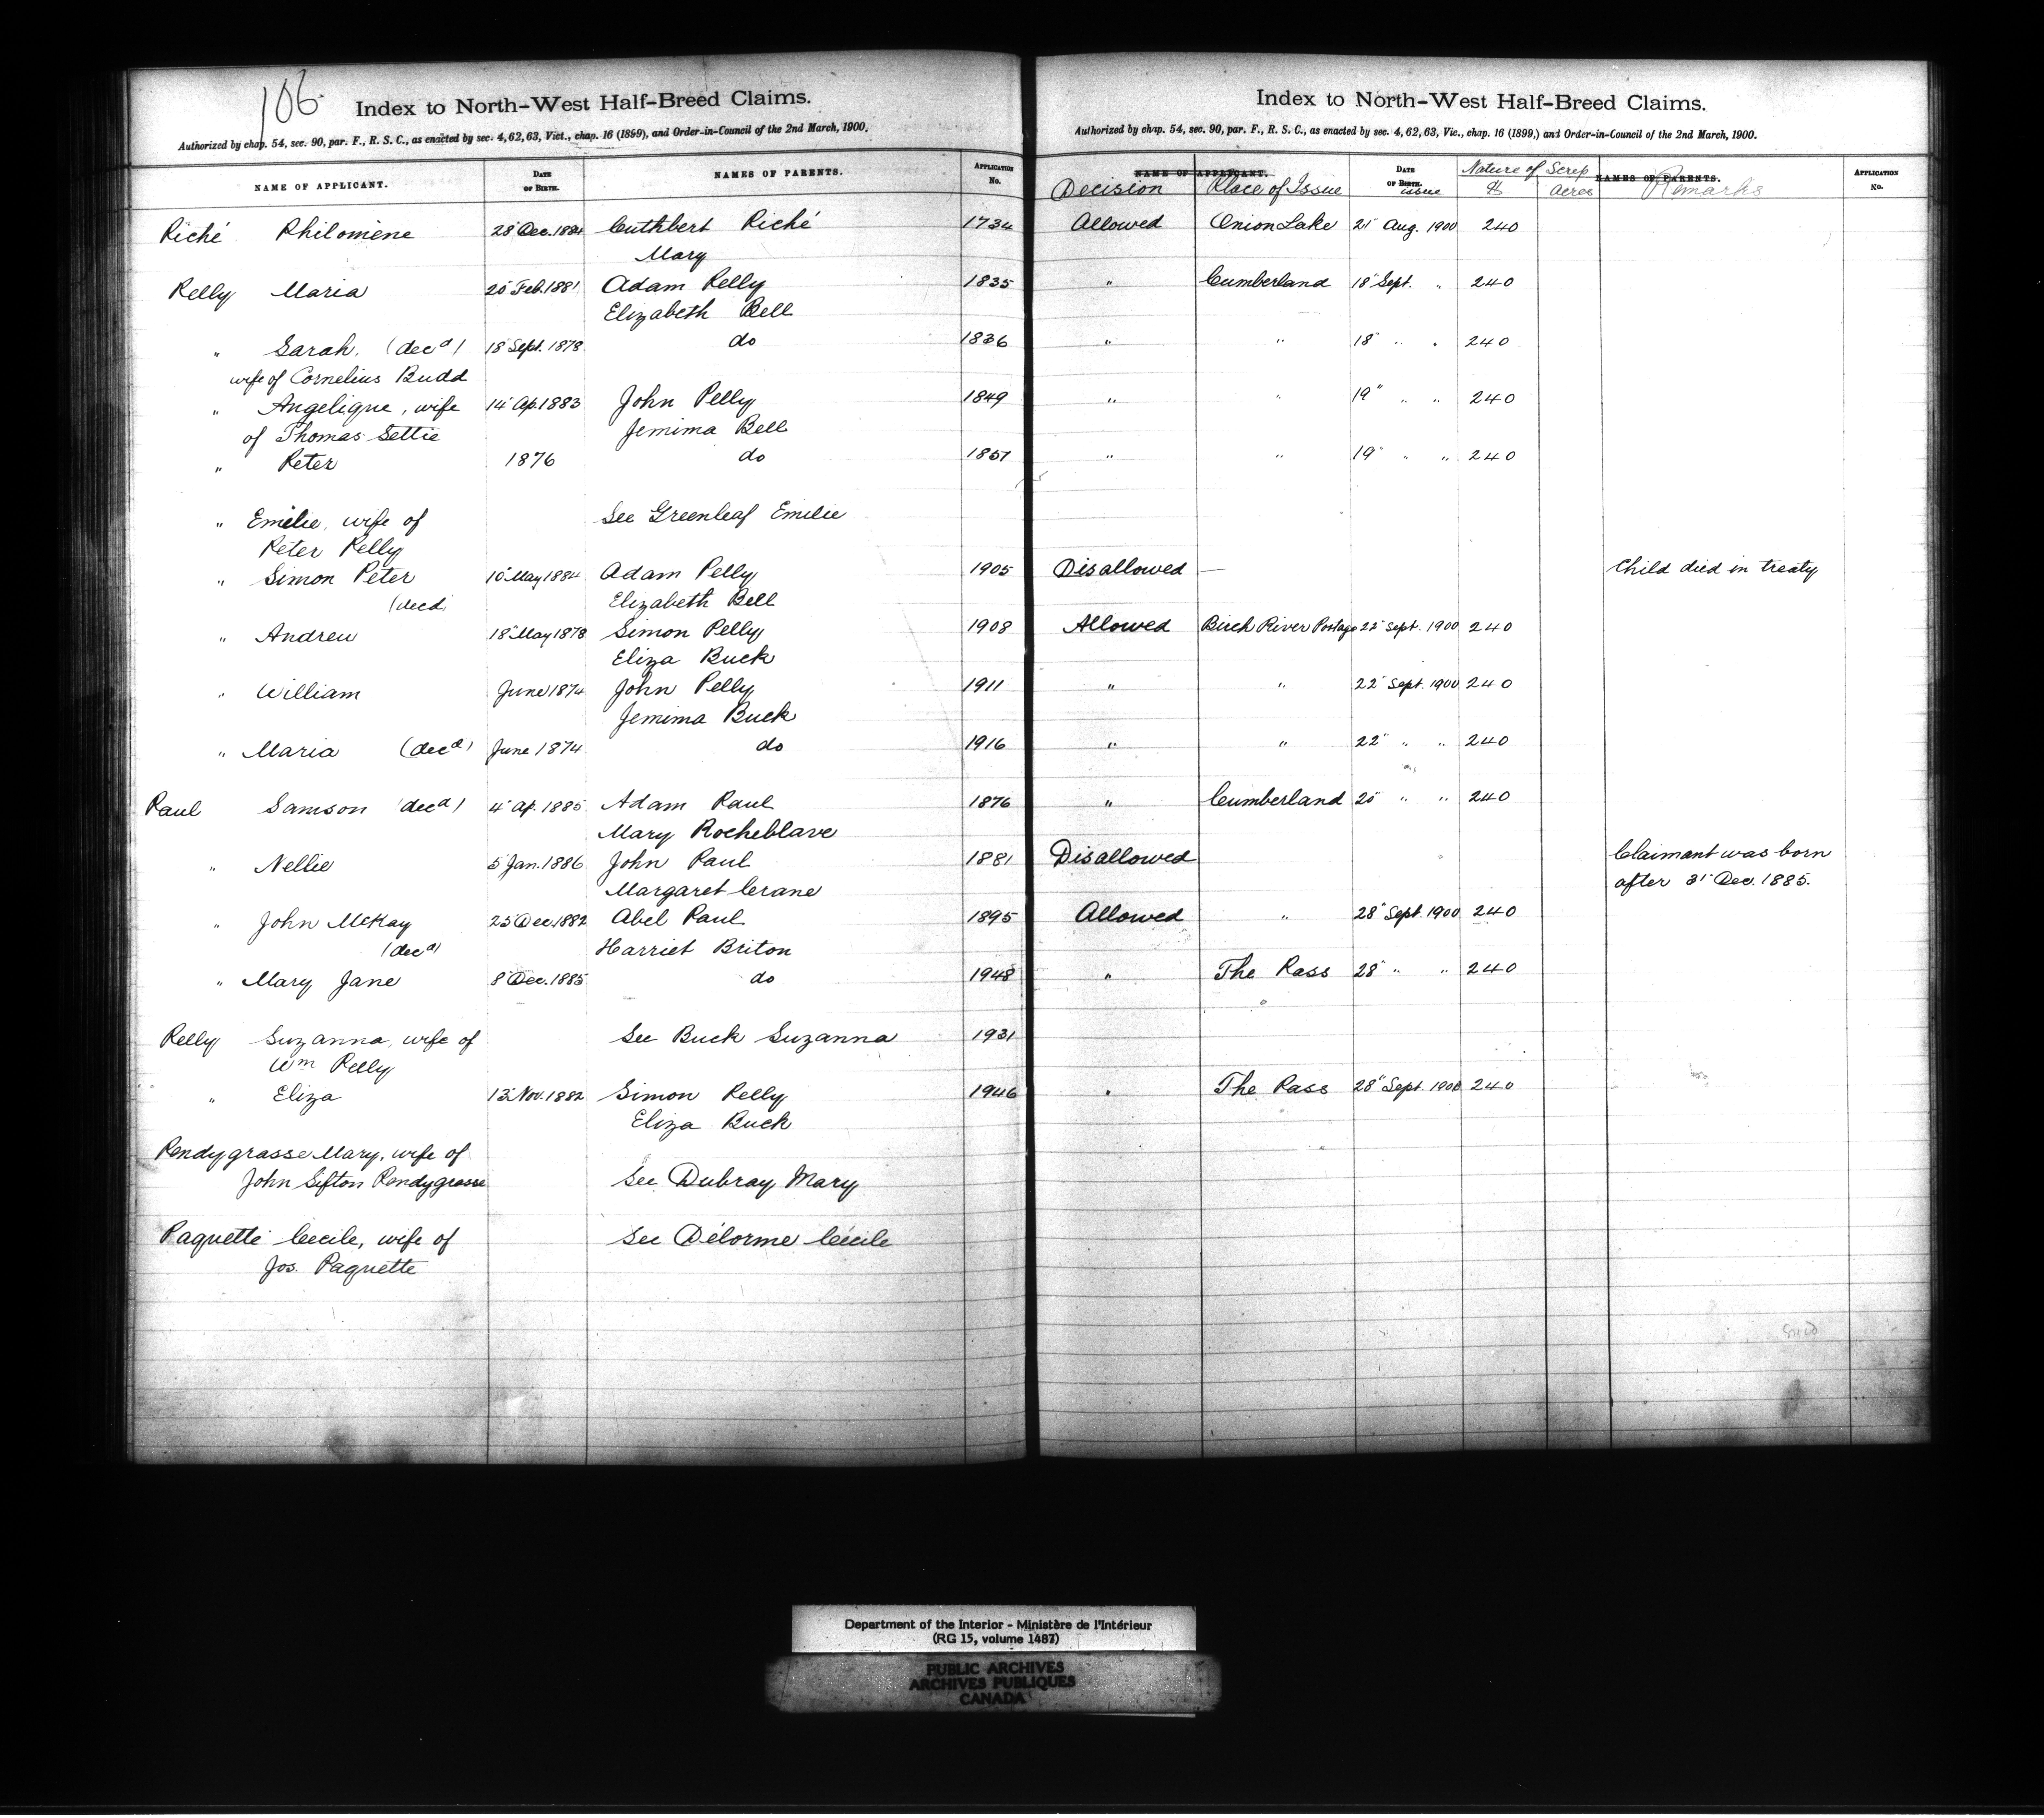 106
Index to North-West Half-Breed Claims.
Authorized by chap. 54, sec. 90, par. F., R. S. C., as enacted by sec. 4, 62, 63, Vict., chap. 16 (1899), and Order-in-Council of the 2nd March, 1900.
NAME OF APPLICANT. DATE OF BIRTH. NAMES OF PARENTS. APPLICATION No.
Piché Philomène 28 Dec. 1884 Cuthbert Piché 1734
Mary
Pelly Maria 20 Feb. 1881 Adam Pelly 1835
Elizabeth Bell
" Sarah, (decd) 18 Sept. 1878 do 1836
wife of Cornelius Budd
" Angelique, wife 14 Ap. 1883 John Pelly 1849
of Thomas Settie Jemima Bell
" Peter 1876 do 1851
" Emélie, wife of See Greenleaf Emilie
Peter Pelly
" Simon Peter 10 May 1884 Adam Pelly 1905
(decd) Elizabeth Bell
" Andrew 18 May 1878 Simon Pelly 1908
Eliza Buck
" William June 1874 John Pelly 1911
Jemima Buck
" Maria (decd) June 1874 do 1916
Paul Samson (decd) 4 Ap. 1885 Adam Paul 1876
Mary Rocheblave
" Nellie 5 Jan. 1886 John Paul 1881
Margaret Cerane
" John McKay 25 Dec. 1882 Abel Paul 1895
(decd) Harriet Briton
" Mary Jane 8 Dec. 1885 do 1948
Pelly Suzanna, wife of See Buck Suzanna 1931
Wm Pelly
" Eliza 13 Nov. 1882 Simon Pelly 1946
Eliza Buck
Pendygrasse Mary, wife of
John Sifton Pendygrasse See Dubray Mary
Paquette Cecile, wife of See Délorme Cécile
Jos. Paquette
Index to North-West Half-Breed Claims.
Authorized by chap. 54, sec. 90, par. F., R. S. C., as enacted by sec. 4, 62, 63, Vic., chap. 16 (1899,) and Order-in-Council of the 2nd March, 1900.
NAME OF APPLICANT. DATE OF BIRTH. Nature of Scrip NAMES OF PARENTS. APPLICATION No.
Decision Place of Issue issue $ Acres Remarks
Allowed Onion Lake 21 Aug. 1900 240
" Cumberland 18 Sept. " 240
" " 18 " " 240
" " 19 " " 240
" " 19 " " 240
Disallowed — Child died in treaty
Allowed Birch River Portage 22 Sept. 1900 240
" " 22 Sept. 1900 240
" " 22 " " 240
" Cumberland 20 " " 240
Disallowed Claimant was born
after 31 Dec. 1885.
Allowed " 28 Sept. 1900 240
" The Pass 28 " " 240
" The Pass 28 Sept. 1900 240
Department of the Interior - Ministère de l'Intérieur
(RG 15, volume 1487)
PUBLIC ARCHIVES
ARCHIVES PUBLIQUES
CANADA